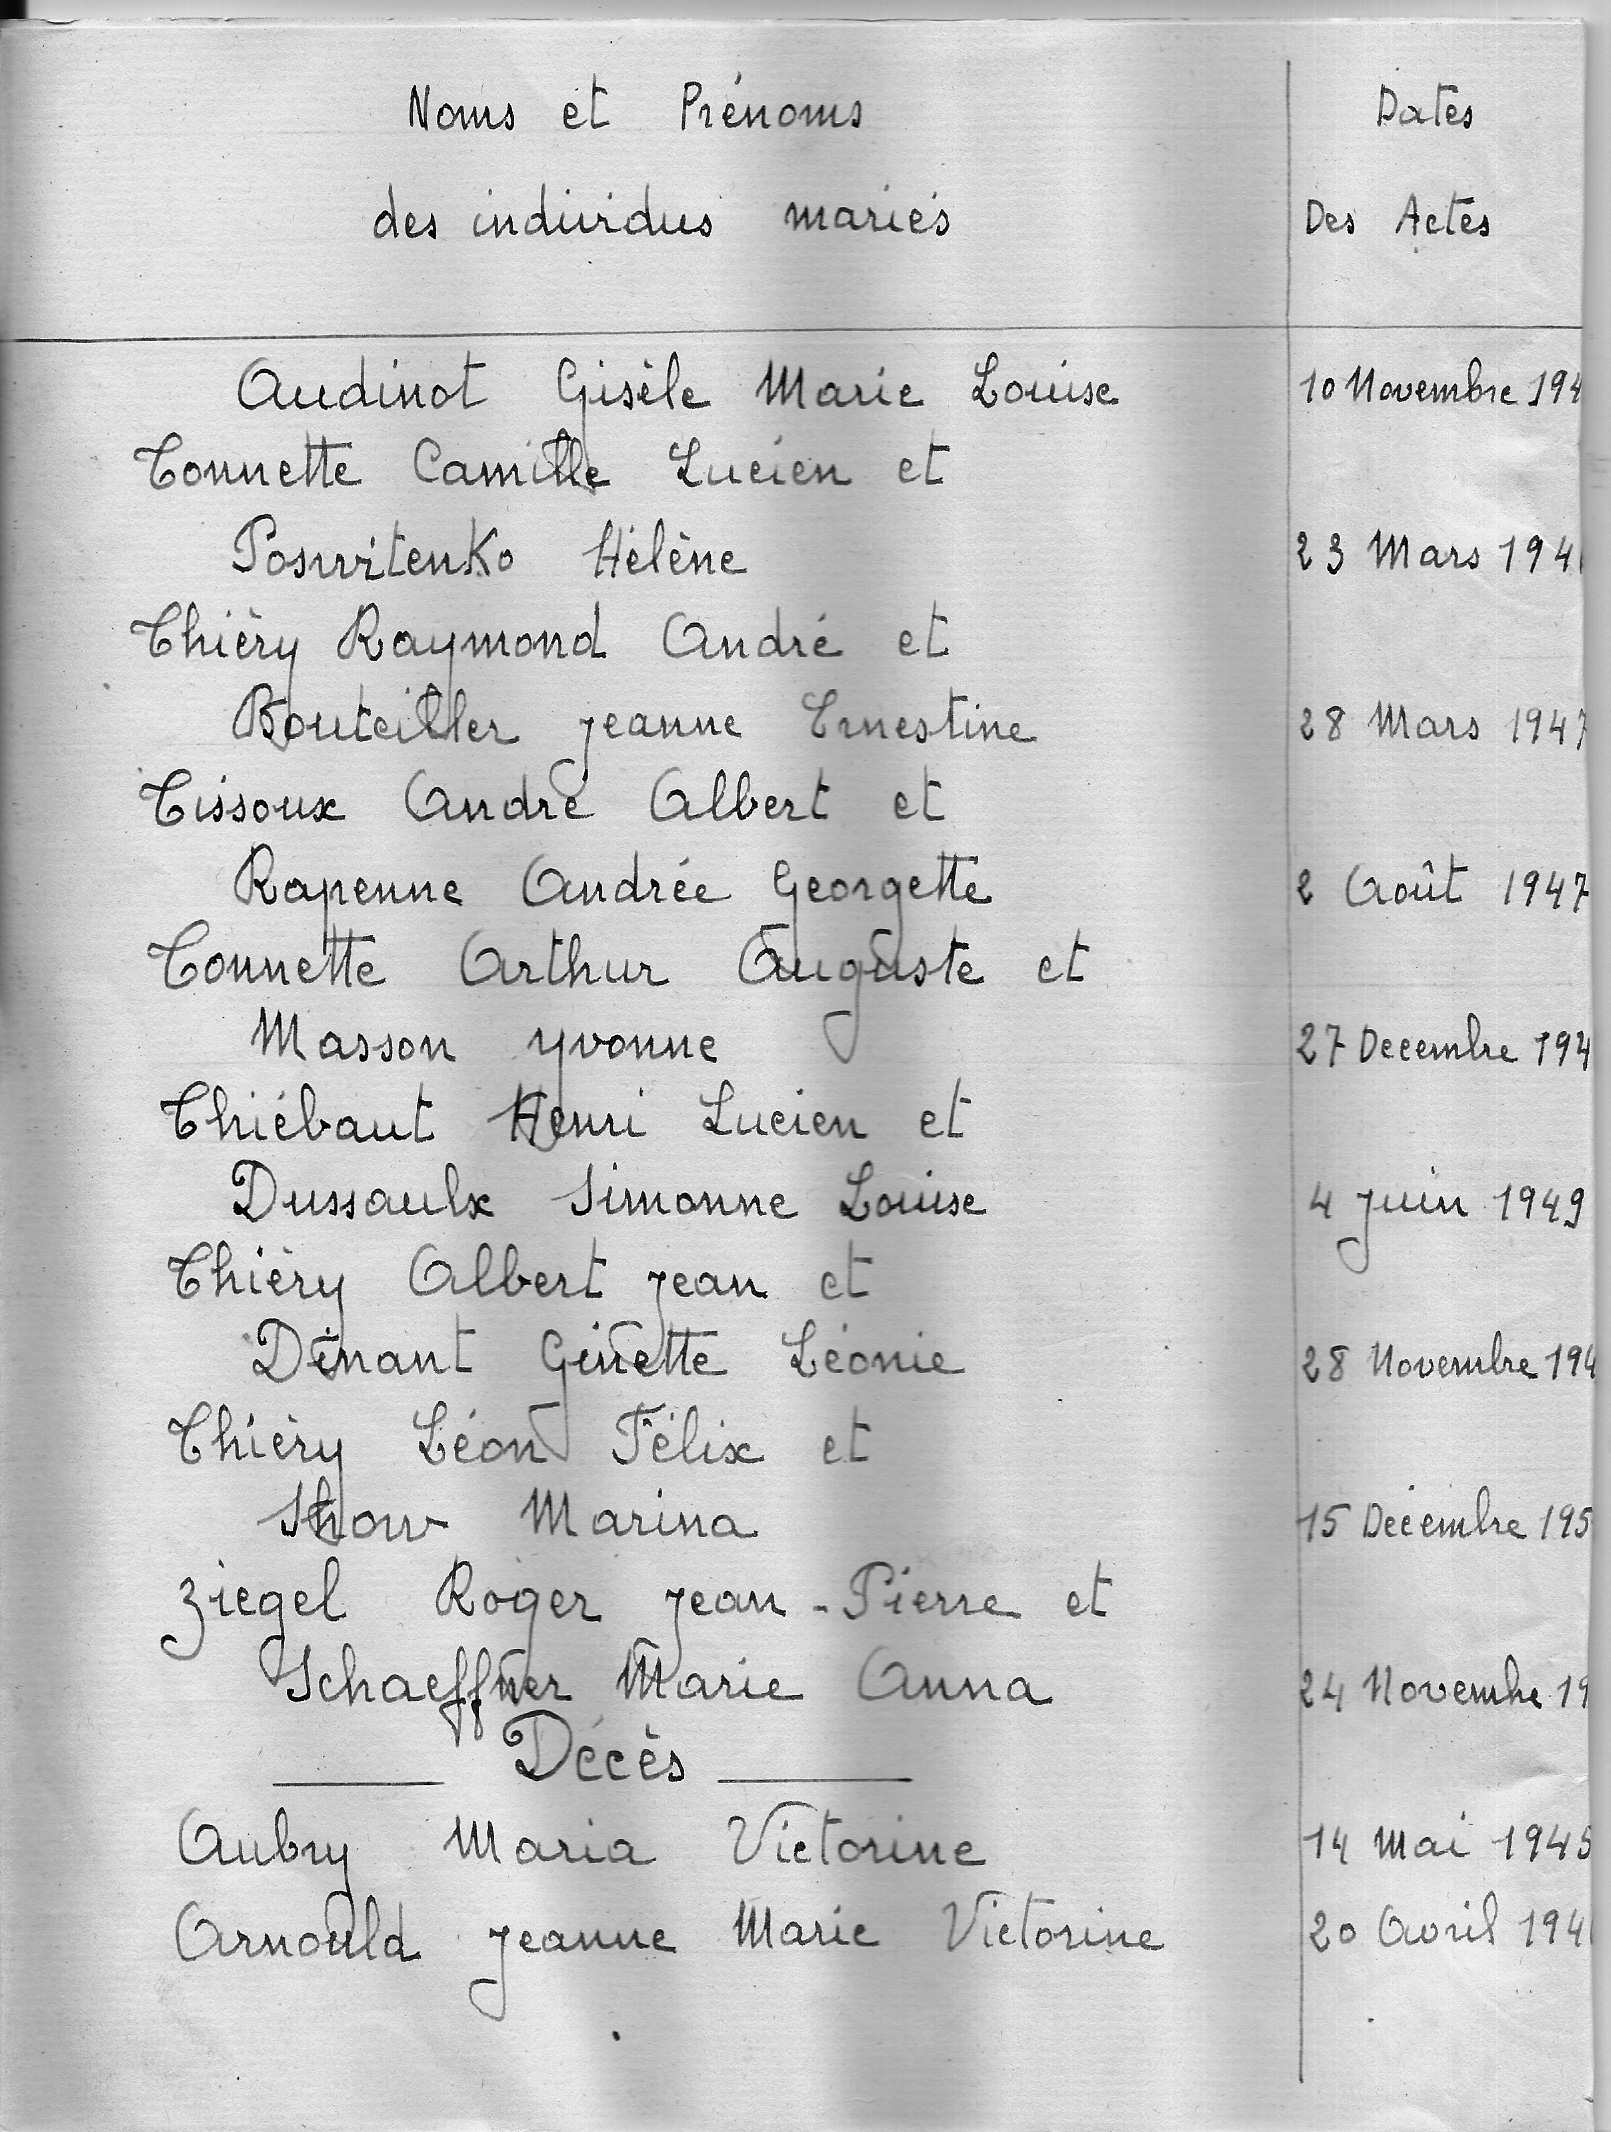 Noms et Prénoms Dates
des individus mariés Des Actes
Audinot Gisèle Marie Louise 10 Novembre 194
Tonnette Camille Lucien et
Poswitenko Hélène 23 Mars 194
Thiéry Raymond André et
Bouteiller Jeanne Ernestine 28 Mars 1947
Tissoux André Albert et
Rapenne Andrée Georgette 2 Août 1947
Tonnette Arthur Auguste et
Masson Yvonne 27 Décembre 194
Thiébaut Henri Lucien et
Dussaulx Simonne Louise 4 Juin 1949
Thiéry Albert Jean et
Dinant Ginette Léonie 28 Novembre 194
Thiéry Léon Félix et
Marina 15 Décembre 195
Ziegel Roger Jean-Pierre et
Schaeffner Marie Anna 24 Novembre 19
Décès
Aubry Maria Victorine 14 Mai 1945
Arnould Jeanne Marie Victorine 20 Avril 194